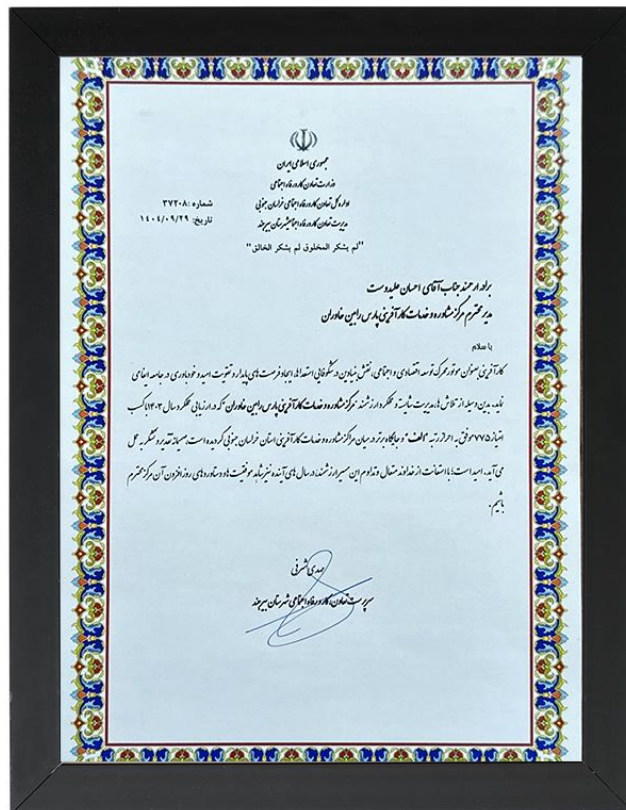 جمهوری اسلامی ایران
وزارت تعاون کار و رفاه اجتماعی
اداره کل تعاون کار و رفاه اجتماعی خراسان جنوبی
مدیریت تعاون کار و رفاه اجتماعی شهرستان بیرجند
شماره: ۳۷۲۰۸
تاریخ: ۱۴۰۴/۰۹/۲۹
"لم یشکر المخلوق لم یشکر الخالق"
برادر ارجمند جناب آقای احسان علیدوست
مدیر محترم مرکز مشاوره و خدمات کارآفرینی پارس رابین خاوران
با سلام
کارآفرینی بعنوان موتور محرک توسعه اقتصادی و اجتماعی، نقش بنیادین در شکوفایی استعدادها، ایجاد فرصت های پایدار و تقویت امید و خودباوری در جامعه ایفا می
نماید. بدین وسیله از تلاش ها، مدیریت شایسته و عملکرد ارزشمند "مرکز مشاوره و خدمات کارآفرینی پارس رابین خاوران" که در ارزیابی عملکرد سال ۱۴۰۳ با کسب
امتیاز ۷۷۵ موفق به احراز رتبه "الف" و جایگاه برتر در میان مراکز مشاوره و خدمات کارآفرینی استان خراسان جنوبی گردیده است، صمیمانه تقدیر و تشکر به عمل
می آید. امید است؛ با استعانت از خداوند متعال و تداوم این مسیر ارزشمند، در سال های آینده نیز شاهد موفقیت ها و دستاوردهای روزافزون آن مرکز محترم
باشیم.
مهدی اشرفی
سرپرست تعاون، کار و رفاه اجتماعی شهرستان بیرجند